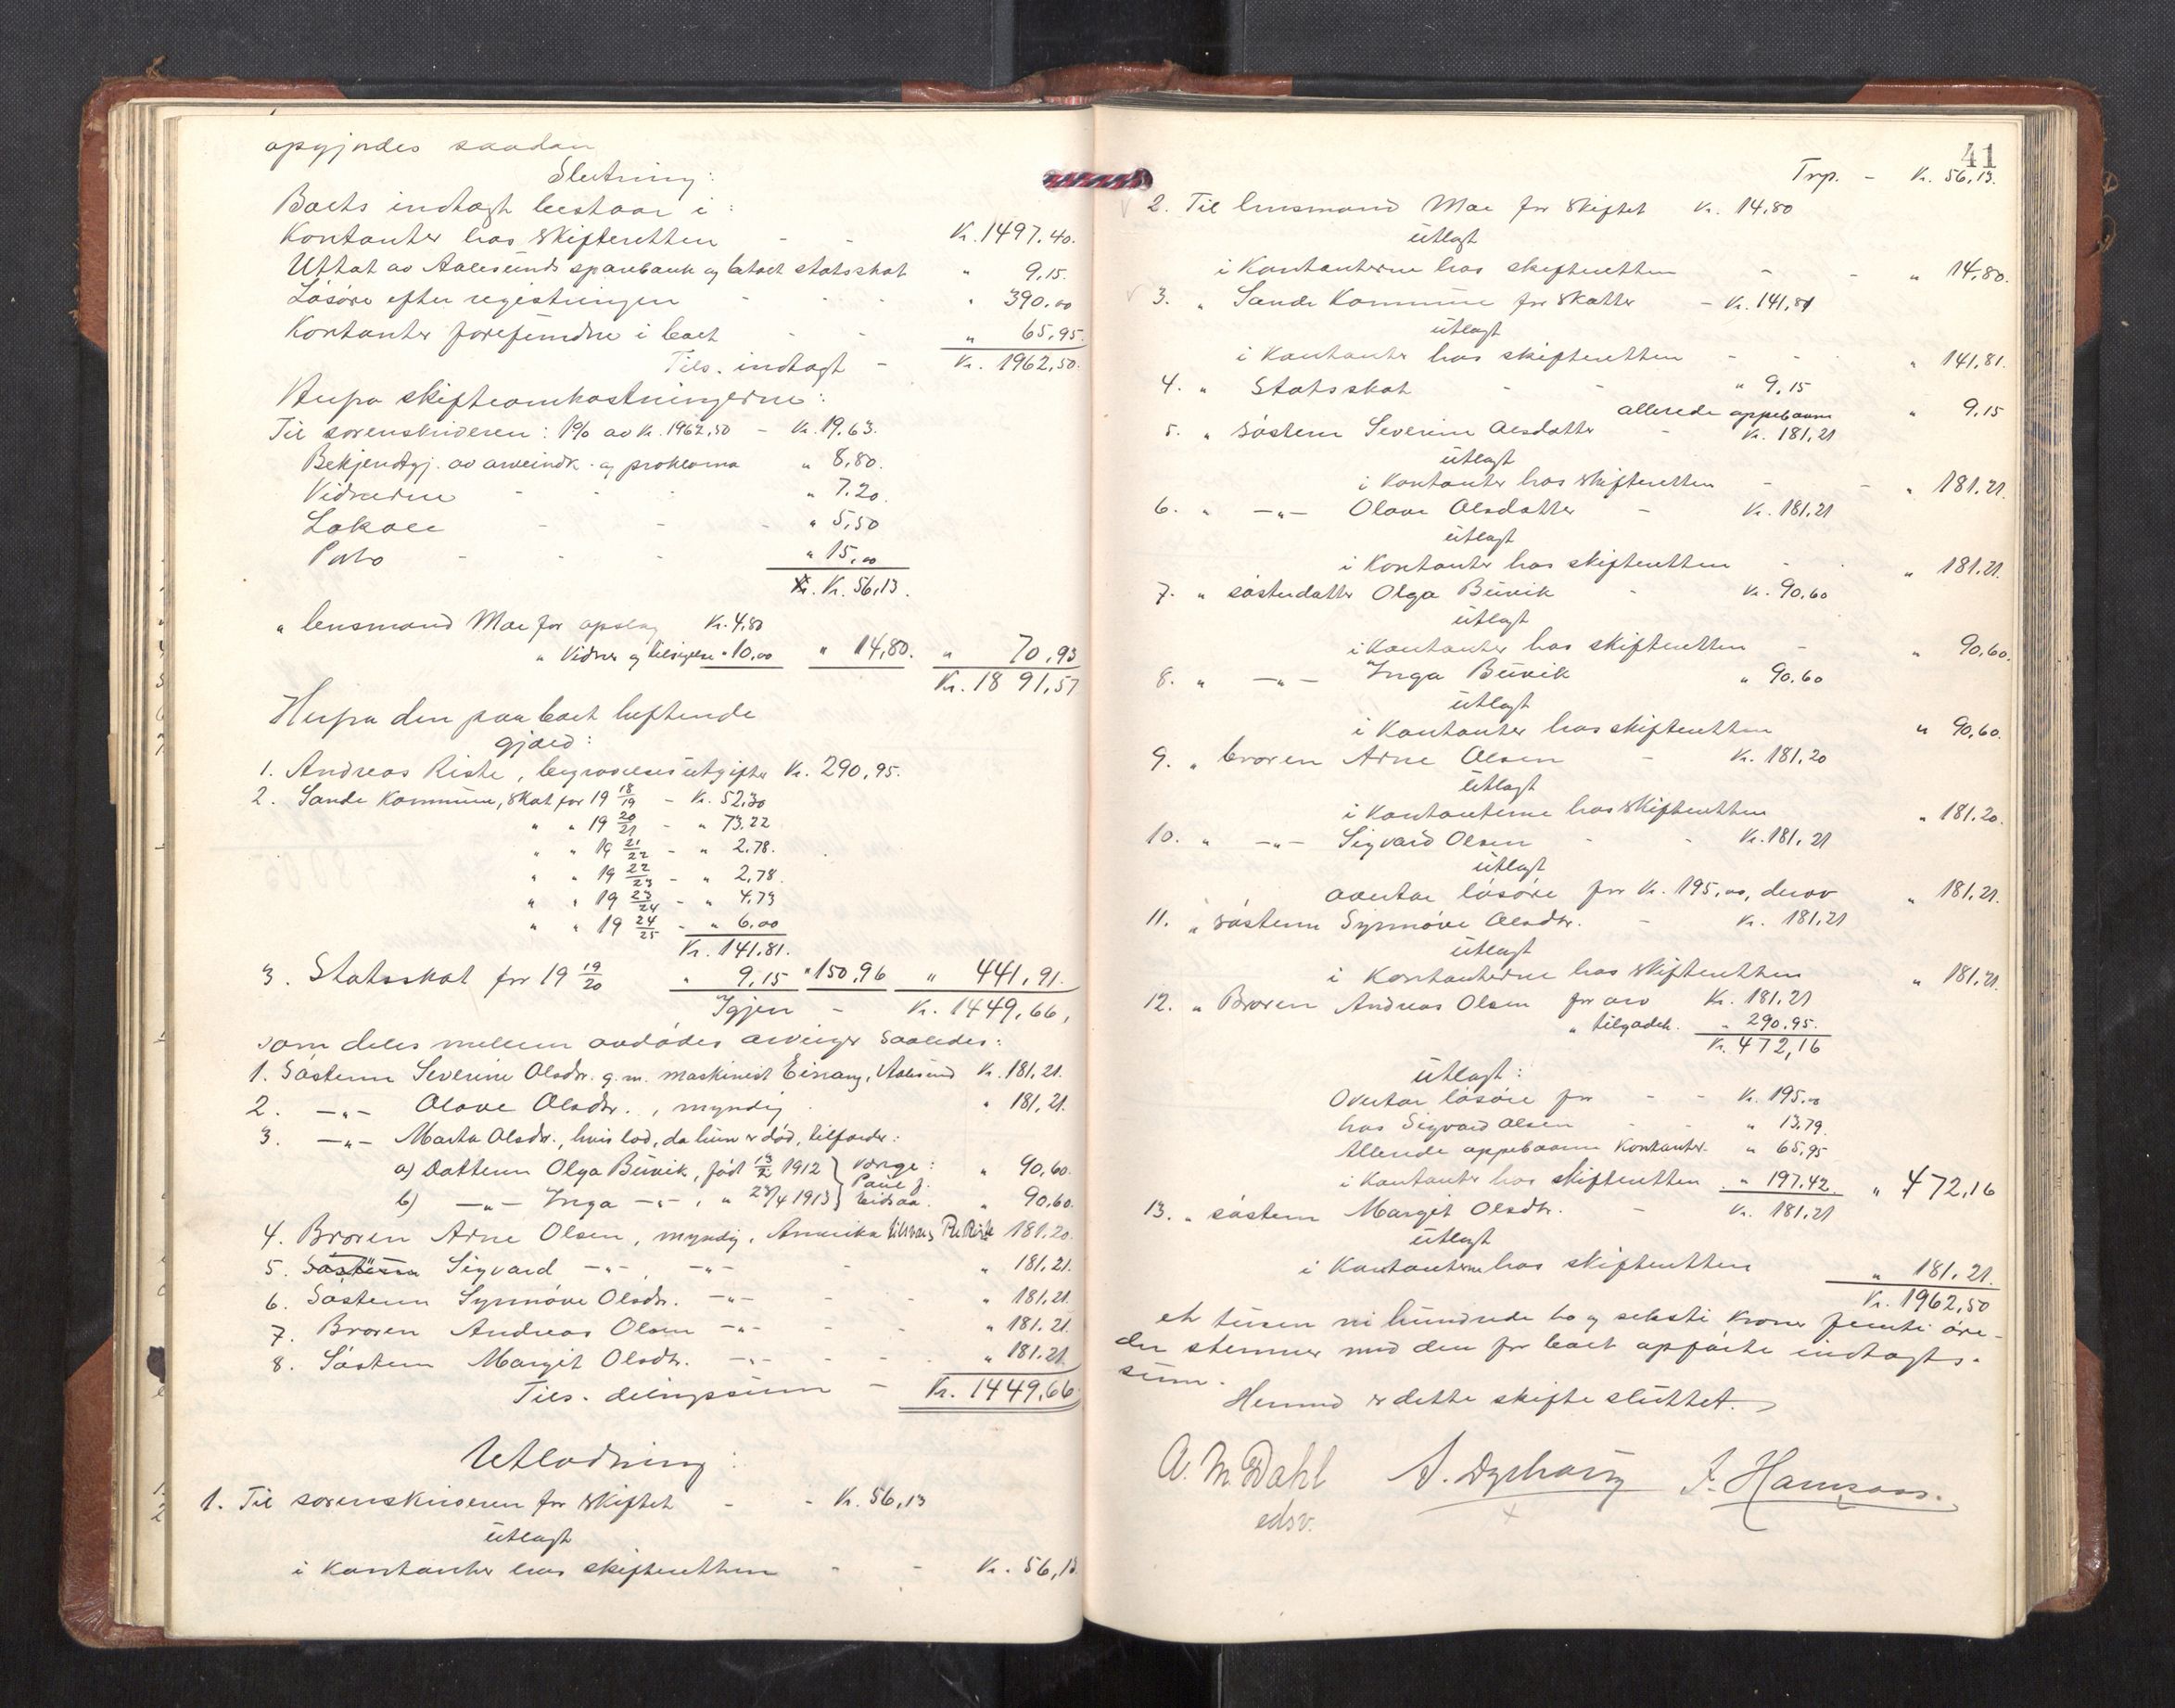 opgjordes saadan
Slutning:
Boets indtægt bestaar i:
Kontanter hos skifteretten - - Kr. 1497.40.
Uttat av Aalesunds sparebank og betalt statsskat " 9,15.
Løsøre efter registreringen - - - " 390.00
Kontanter forefundne i boet - - " 65,95.
Tils. indtægt - Kr. 1962,50.
Herfra skifteomkostningerne:
Til sorenskriveren: 1% av Kr. 1962,50 - Kr. 19,63.
Bekjendtgj. av arveindk. og proklama " 8,80.
Vidnerne - - " 7.20.
Lokale - - - " 5,50
Porto - - - " 15,00
Kr. 56,13.
" lensmand Moe for opslag Kr. 4,80
" Vidner og tilsigelse " 10,00 " 14,80. " 70,93
Kr. 1891,57
Herfra den paa boet heftende
gjæld:
1. Andreas Riste, begravelsesutgifter Kr. 290,95.
2. Sande kommune, skat for 19 18/19 - Kr. 52,30
" " 19 20/21 - " 73,22
" " 19 21/22 - " 2,78.
" " 19 22/23 - " 2,78.
" " 19 23/24 - " 4,73
" " 19 24/25 - " 6,00
Kr. 141,81.
3. Statsskat for 19 19/20 " 9,15 " 150,96 " 441,91.
Igjen - Kr. 1449,66,
som deles mellem avdødes arvinger saaledes:
1. Søsteren Severine Olsdtr. g.m. maskinist Einang, Aalesund Kr. 181,21.
2. -"- Olave Olsdtr., myndig " 181,21.
3. -"- Marta Olsdtr., hvis lod, da hun er død, tilfalder:
a) Datteren Olga Buvik, født 13/2 1912 } værge: " 90,60.
Paul J.
b) -"- Inga -"-, " 28/4 1913 } Eidsaa. " 90,60.
4. Broren Arne Olsen, myndig, Amerika 181,20.
5. Sigvard -"-, -"- - " 181,21.
6. Søsteren Synnøve Olsdtr. -"- - - " 181,21.
7. Broren Andreas Olsen -"- - - " 181,21.
8. Søsteren Margit Olsdtr. -"- - - - " 181,21.
Tils. delingssum - Kr. 1449,66.
Utlodning:
1. Til sorenskriveren for skiftet - - Kr. 56,13
utlagt
i kontanter hos skifteretten - - Kr. 56,13.
41
Trp. - Kr. 56,13.
2. Til lensmand Moe for skiftet Kr. 14,80
utlagt
i kontanterne hos skifteretten - - " 14,80.
3. " Sande Kommune for skatter - Kr. 141,81
utlagt
i kontanter hos skifteretten - - " 141,81.
4. " Statsskat - - " 9,15
allerede oppebaaren " 9,15
5. " søsteren Severine Olsdatter - Kr. 181,21
utlagt
i kontanter hos skifteretten - - " 181,21.
6. " -"- Olave Olsdatter - Kr. 181,21
utlagt
i kontanter hos skifteretten - - " 181,21.
7. " søsterdatter Olga Buvik - Kr. 90,60
utlagt
i kontanter hos skifteretten - " 90,60.
8. " -"- Inga Buvik " 90,60
utlagt
i kontanter hos skifteretten " 90,60.
9. " broren Arne Olsen - Kr. 181,20
utlagt
i kontanterne hos skifteretten " 181,20.
10. " -"- Sigvard Olsen - - Kr. 181,21
utlagt
overtar løsøre for Kr. 195,00, derav " 181,21.
11. " søsteren Synnøve Olsdtr. - Kr. 181,21
utlagt
i kontanterne hos skifteretten " 181,21.
12. " Broren Andreas Olsen for arv Kr. 181,21
" tilgodeh. " 290,95.
Kr. 472,16
utlagt:
Overtar løsøre for - - Kr. 195,00
hos Sigvard Olsen - - " 13,79.
Allerede oppebaarne kontanter - " 65,95
i kontanter hos skifteretten " 197,42. " 472,16
13. " søsteren Margit Olsdtr. - Kr. 181,21
utlagt
i kontanterne hos skifteretten " 181,21.
Kr. 1962,50
et tusen ni hundrede to og seksti kroner femti øre -
der stemmer med den for boet opførte indtægts-
sum.
Hermed er dette skifte sluttet.
A. M. Dahl
edsv.